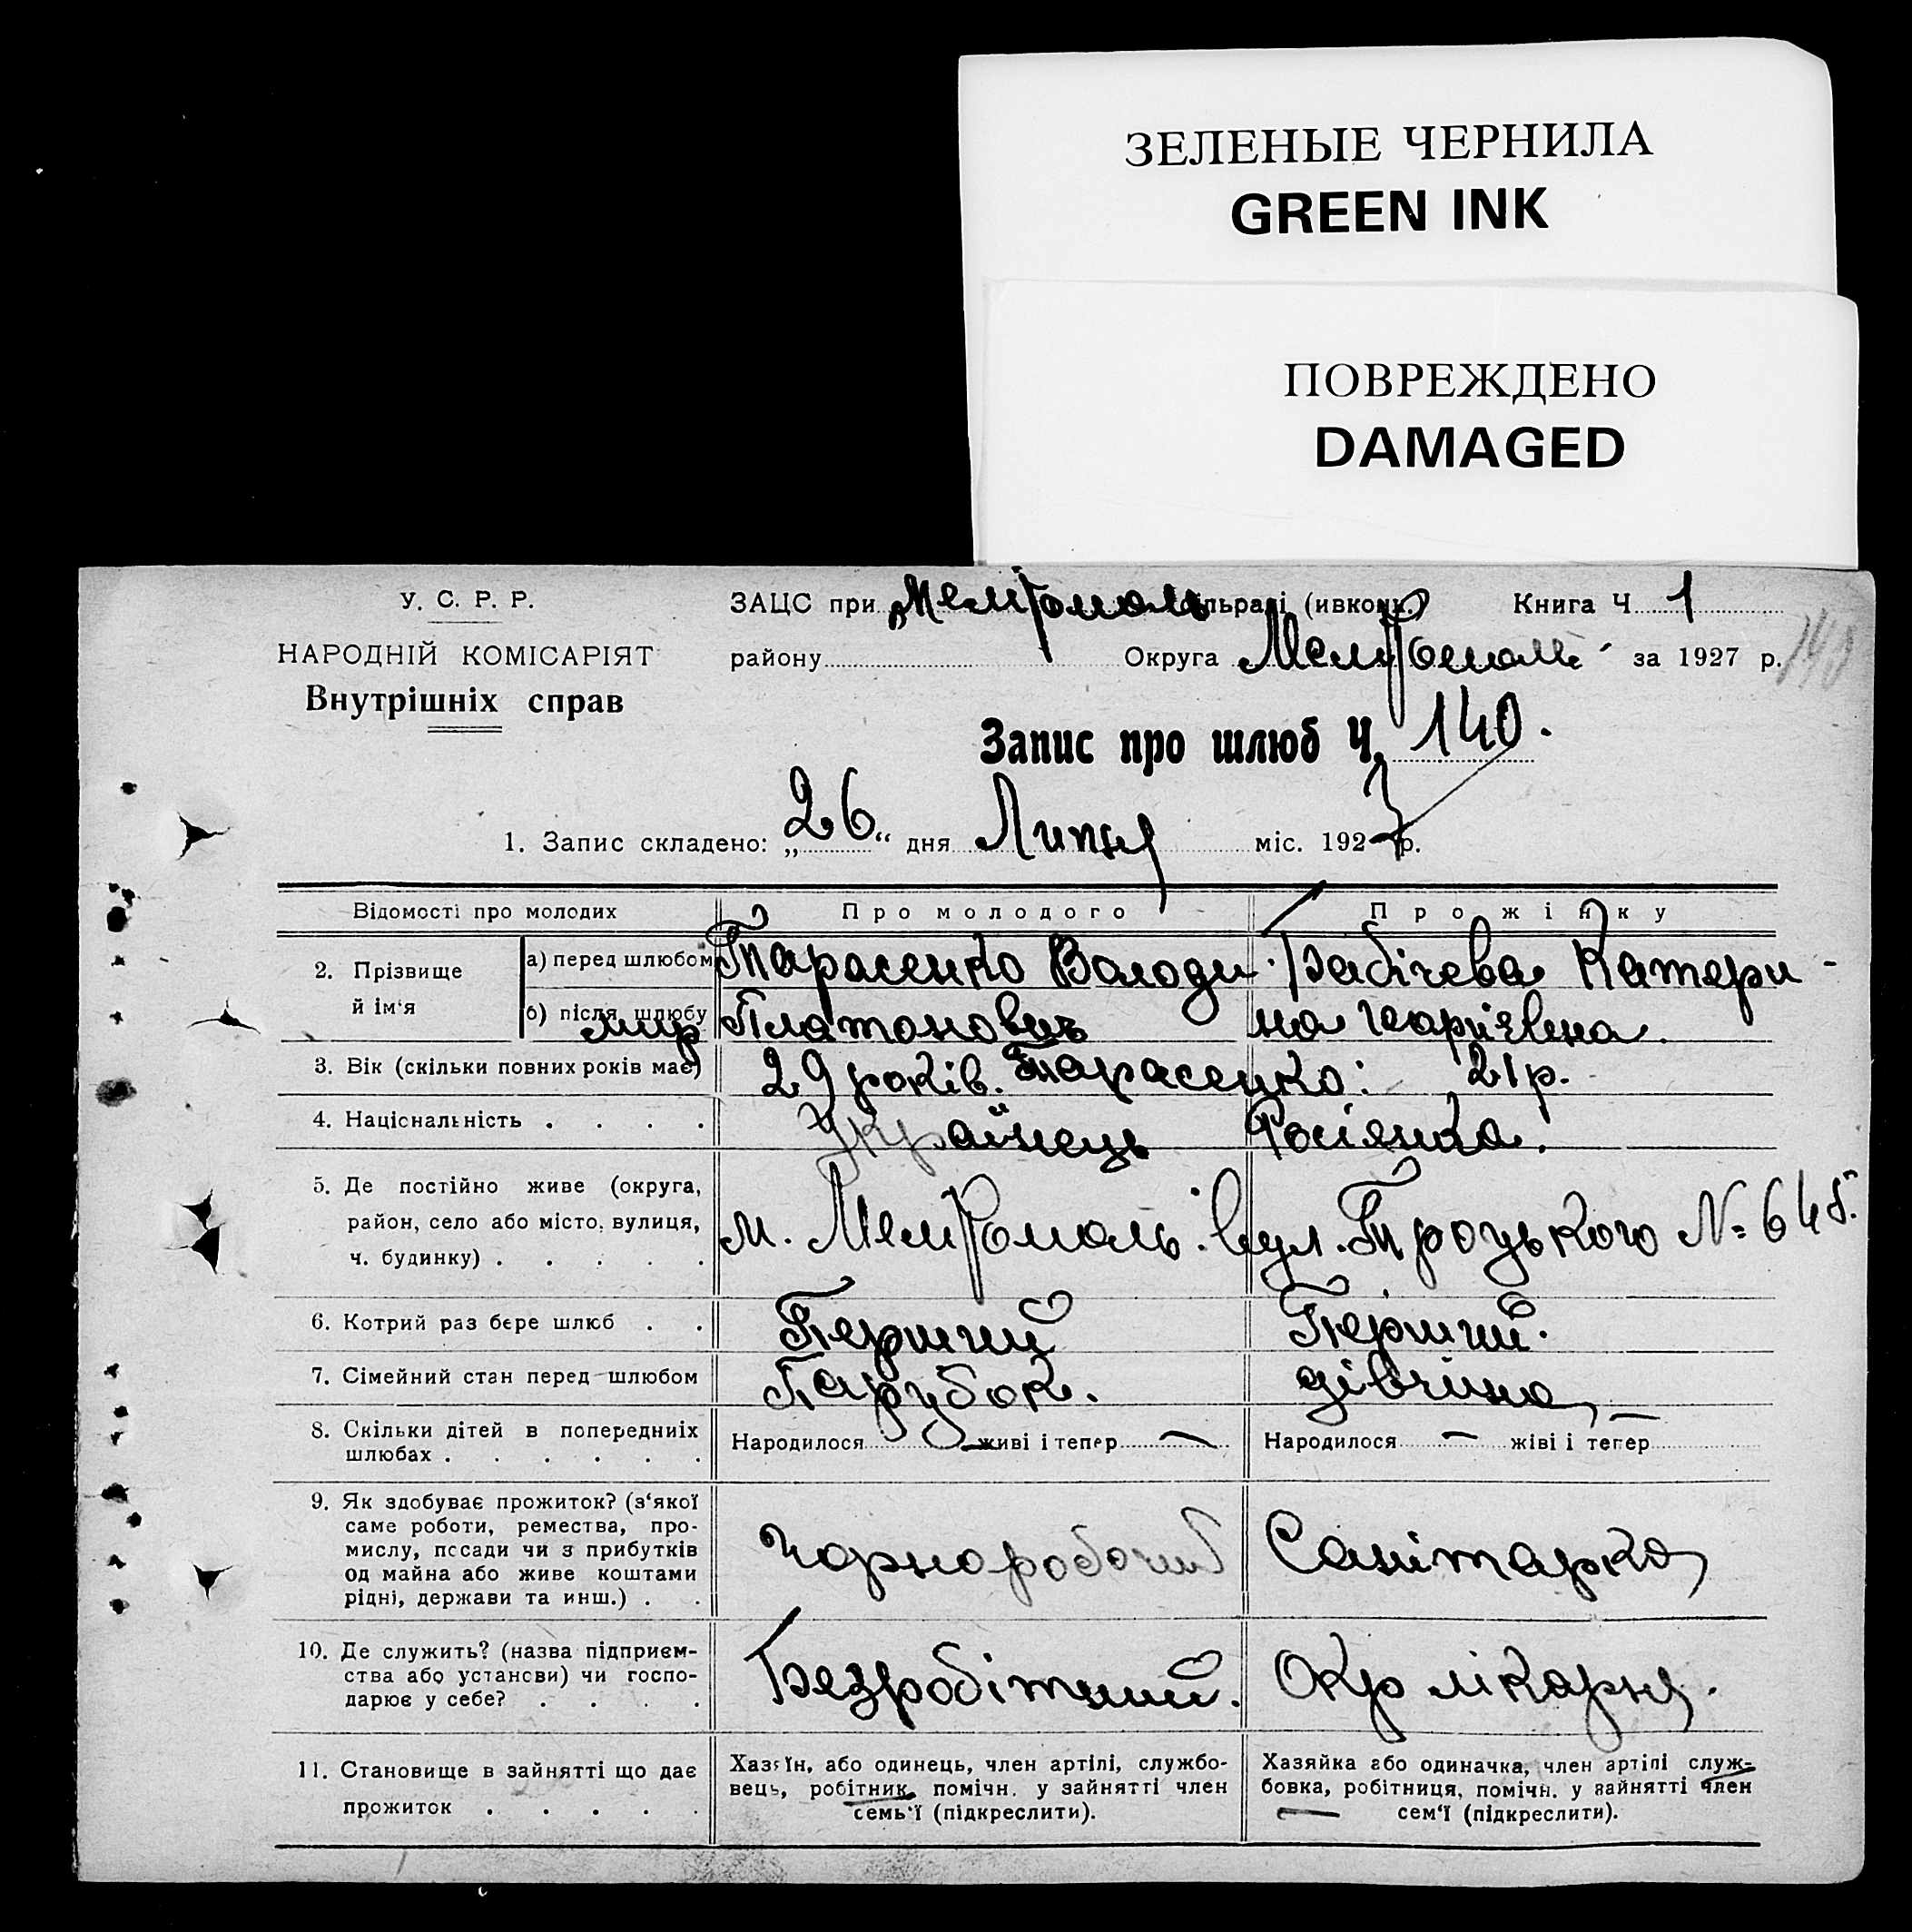 ЗЕЛЕНЫЕ ЧЕРНИЛА
GREEN INK
ПОВРЕЖДЕНО
DAMAGED
У. С. Р. Р.
ЗАЦС при Мелітополь (ивконк.) Книга Ч 1
НАРОДНІЙ КОМІСАРІЯТ
району Округа за 1927 р. 140
Внутрішніх справ
Запис про шлюб Ч. 140.
1. Запис складено: „26“ дня Липня міс. 1927 р.
Відомості про молодих Про молодого Про жінку
2. Прізвище й ім'я
а) перед шлюбом Тарасенко Володи- Бабічева Катери-
б) після шлюбу мир Платонович на
3. Вік (скільки повних років має) 29 років. Тарасенко: 21 р.
4. Національність . . . . Українець Росіянка.
5. Де постійно живе (округа,
район, село або місто, вулиця,
ч. будинку) . . . . . м. Мелітополь. вул. Троцького №
6. Котрий раз бере шлюб . . Перший Перший.
7. Сімейний стан перед шлюбом Парубок. дівчина
8. Скільки дітей в попередниіх
шлюбах . . . . . . Народилося — живі і тепер — Народилося — жіві і тепер —
9. Як здобуває прожиток? (з‘якої
саме роботи, ремества, про-
мислу, посади чи з прибутків
од майна або живе коштами
рідні, держави та инш.) . . Чорноробочий Санітарка
10. Де служить? (назва підприєм-
ства або установи) чи госпо-
дарює у себе? . . . . Безробітний. Окр лікарня.
11. Становище в зайнятті що дає
прожиток . . . . .
Хазяїн, або одинець, член артілі, службо-
вець, робітник, помічн. у зайнятті член
семь‘ї (підкреслити).
Хазяйка або одиначка, член артілі служ-
бовка, робітниця, помічн. у зайнятті член
сем‘ї (підкреслити).